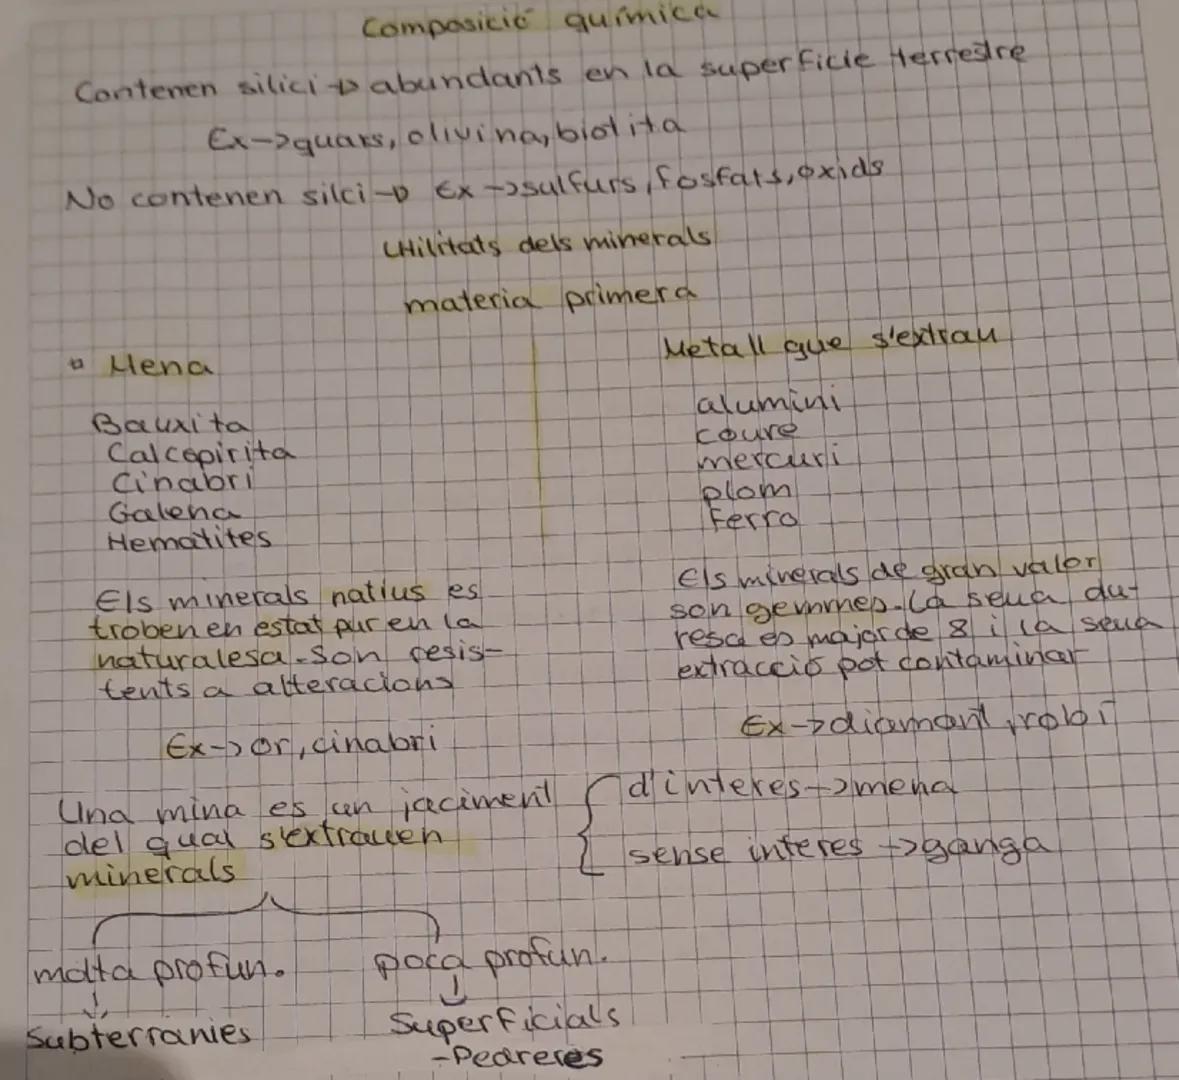 Composició química
Contenen silici → abundants en la superficie terrestre
Ex → quars, olivina, biotita
No contenen silci → Ex → sulfurs, fosfats, oxids
Utilitats dels minerals
materia primera
Mena
Bauxita
Calcopirita
Cinabri
Galena
Hematites
Metall que s'extrau
alumini
coure
mercuri
plom
Ferro
Els minerals natius es
troben en estat pur en la
naturalesa. Son resis-
tents a alteracions
Ex → or, cinabri
Els minerals de gran valor
son gemmes. La seua du-
resa es major de 8 i la seua
extracció pot contaminar
Ex → diamant, robí
Una mina es un jaciment
del qual s'extrauen
minerals
d'interes → mena
sense interes → ganga
molta profun.
Subterranies
poca profun.
Superficials
-Pedreres